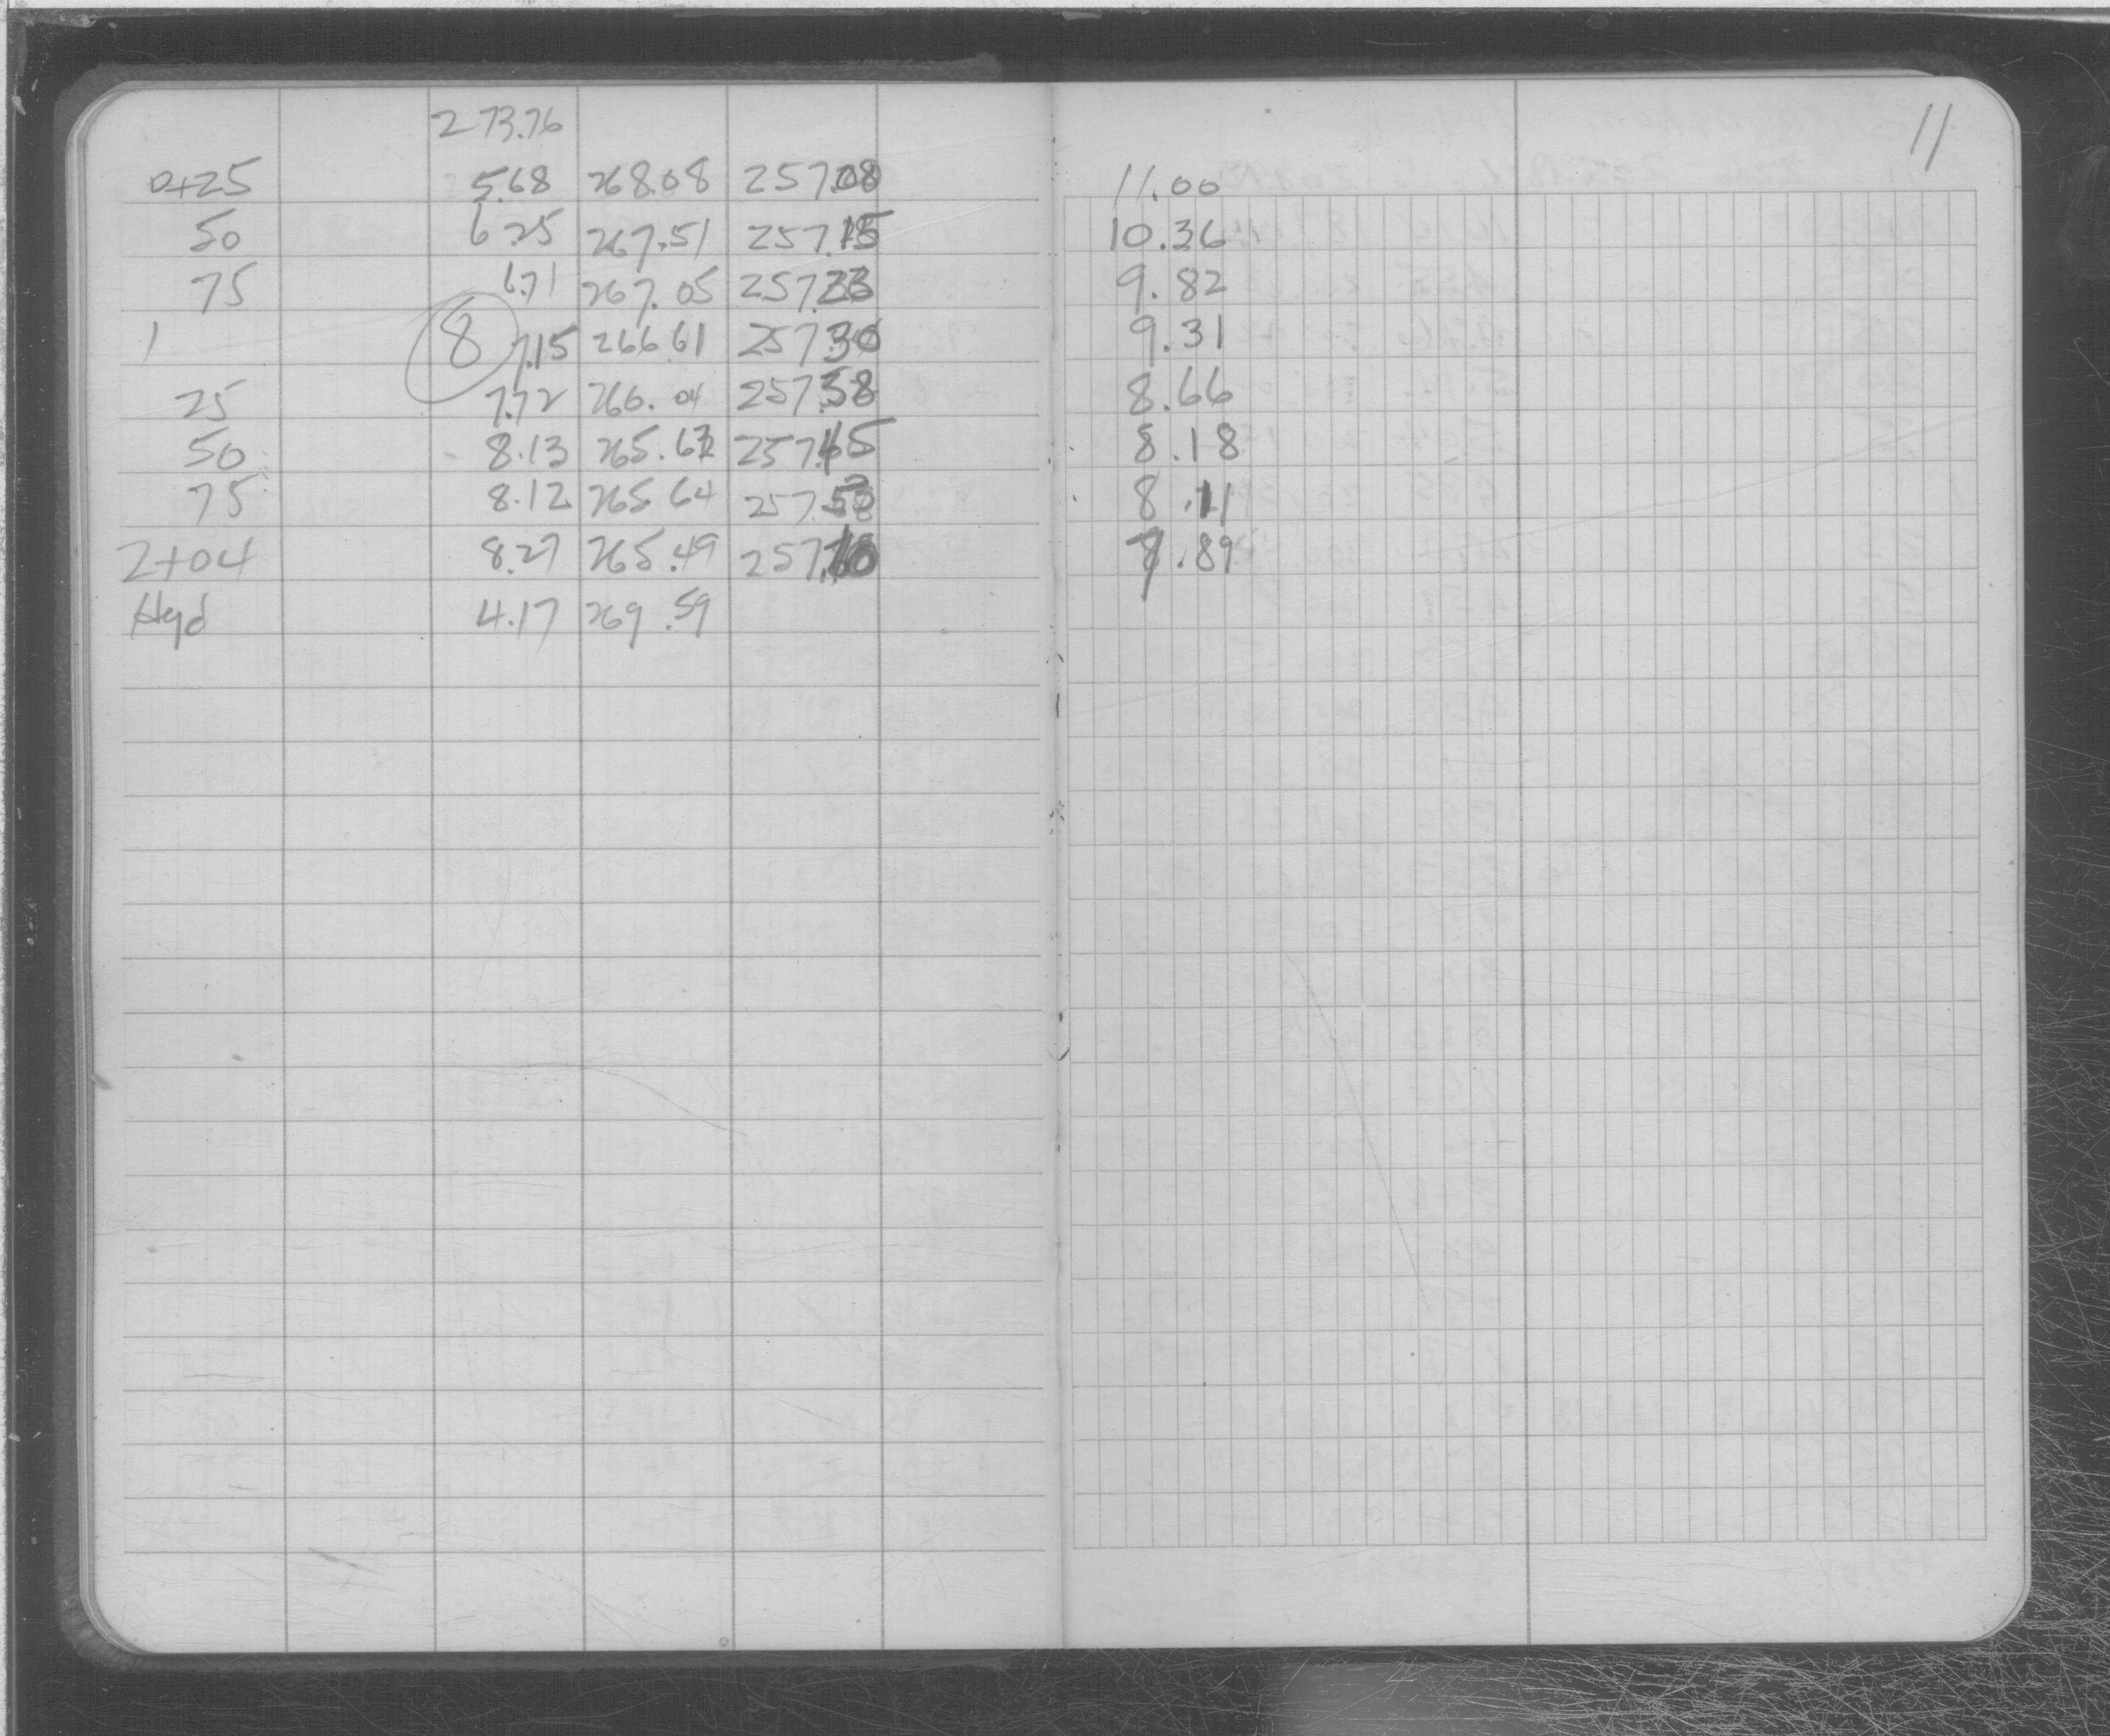 11
273.76
0+25 5.68 268.08 257.08 11.00
50 6.25 267.51 257.15 10.36
75 6.71 267.05 257.23 9.82
1 8 7.15 266.61 257.30 9.31
25 7.72 266.04 257.38 8.66
50 8.13 265.63 257.45 8.18
75 8.12 265.64 257.53 8.11
2+04 8.27 265.49 257.60 7.89
Hyd 4.17 269.59